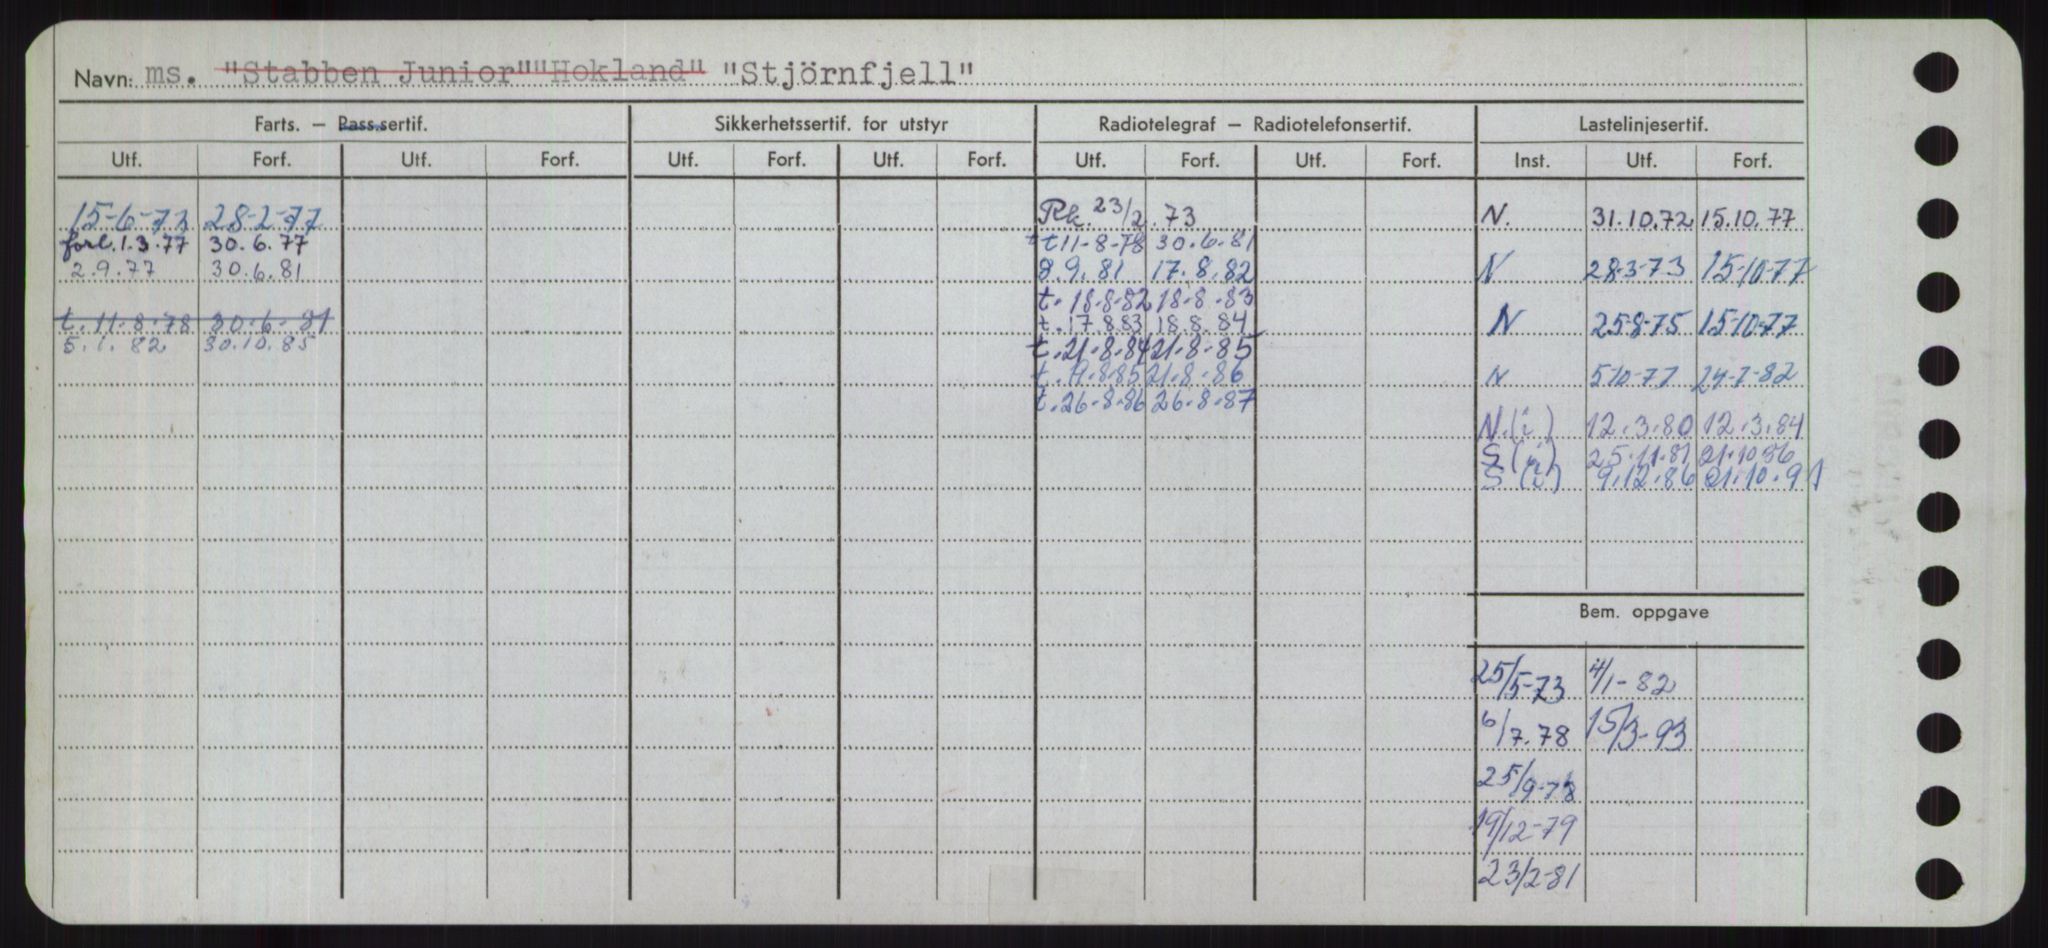 Navn: ms. "Stabben Junior" "Hokland" "Stjörnfjell"
Farts. — Pass.sertif. Sikkerhetssertif. for utstyr Radiotelegraf — Radiotelefonsertif. Lastelinjesertif.
Utf. Forf. Utf. Forf. Utf. Forf. Utf. Forf. Utf. Forf. Utf. Forf. Inst. Utf. Forf.
15-6-73 28-2-77 Rk. 23/2.73 N. 31.10.72 15.10.77
forl. 1.3.77 30.6.77 t 11-8-78 30.6.81
2.9.77 30.6.81 8.9.81 17.8.82 N 28-3-73 15-10-77
t. 18-8-82 18-8-83
t. 11-8-78 30-6-81 t. 17.8.83 18.8.84 N 25-8-75 15-10-77
5.1.82 30.10.85 t. 21.8.84 21.8-85
t. 19.8.85 21.8-86 N 5-10-77 24-7-82
t. 26-8-86 26-8-87
N.(i) 12.3.80 12.3.84
S (i) 25.11.81 21.10 86
S (i) 9.12.86 21.10.91
Bem. oppgave
25/5-73 4/1-82
6/7.78 15/3-93
25/9-78
19/12-79
23/2-81